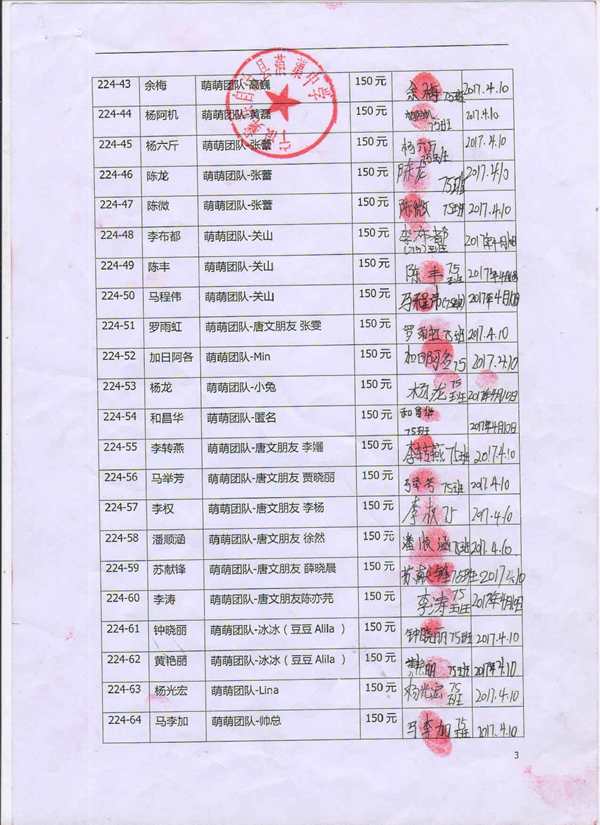 224-43 余梅 萌萌团队-高巍 150元 余梅 75班 2017.4.10
224-44 杨阿机 萌萌团队-黄磊 150元 75班 2017.4.10
224-45 杨六斤 萌萌团队-张蕾 150元 杨六斤 75班 2017.4.10
224-46 陈龙 萌萌团队-张蕾 150元 陈龙 75班 2017.4.10
224-47 陈微 萌萌团队-张蕾 150元 陈微 75班 2017.4.10
224-48 李布都 萌萌团队-关山 150元 李布都 (75)班 2017年4月10日
224-49 陈丰 萌萌团队-关山 150元 陈丰 75班 2017年4月10日
224-50 马程伟 萌萌团队-关山 150元 马程伟 (75班) 2017年4月10日
224-51 罗雨虹 萌萌团队-唐文朋友 张雯 150元 罗雨虹 75班 2017.4.10
224-52 加日阿各 萌萌团队-Min 150元 加日阿各 75 2017.4.10
224-53 杨龙 萌萌团队-小兔 150元 杨龙 75班 2017年4月10日
224-54 和昌华 萌萌团队-匿名 150元 和昌华 75班 2017年4月10日
224-55 李转燕 萌萌团队-唐文朋友 李姗 150元 李转燕 75班 2017.4.10
224-56 马举芳 萌萌团队-唐文朋友 贾晓丽 150元 马举芳 75班 2017.4.10
224-57 李权 萌萌团队-唐文朋友 李杨 150元 李权 75 2017.4.10
224-58 潘顺涵 萌萌团队-唐文朋友 徐然 150元 潘顺涵 75班 2017.4.10
224-59 苏献锋 萌萌团队-唐文朋友 薛晓晨 150元 苏献锋 75班 2017.4.10
224-60 李涛 萌萌团队-唐文朋友陈亦芫 150元 李涛 75班 2017年4月10日
224-61 钟晓丽 萌萌团队-冰冰（豆豆 Alila ） 150元 钟晓丽 75班 2017.4.10
224-62 黄艳丽 萌萌团队-冰冰（豆豆 Alila ） 150元 75班 2017.4.10
224-63 杨光宏 萌萌团队-Lina 150元 杨光宏 75班 2017.4.10
224-64 马李加 萌萌团队-帅总 150元 马李加 75班 2017.4.10
3